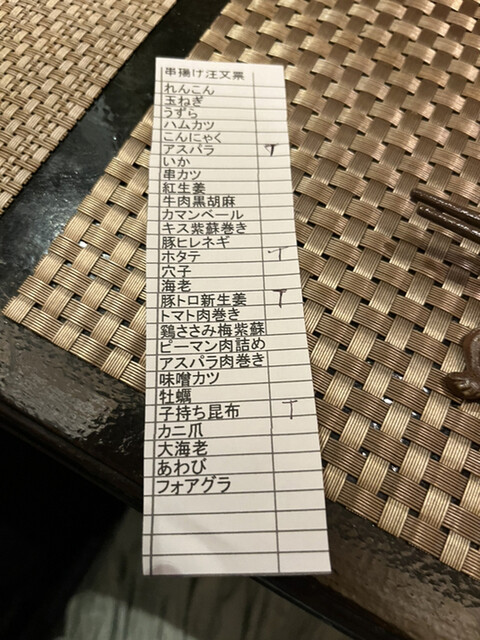 串揚げ注文票
れんこん
玉ねぎ
うずら
ハムカツ
こんにゃく
アスパラ 丅
いか
串カツ
紅生姜
牛肉黒胡麻
カマンベール
キス紫蘇巻き
豚ヒレネギ
ホタテ 丅
穴子
海老
豚トロ新生姜 丅
トマト肉巻き
鶏ささみ梅紫蘇
ピーマン肉詰め
アスパラ肉巻き
味噌カツ
牡蠣
子持ち昆布 丅
カニ爪
大海老
あわび
フォアグラ